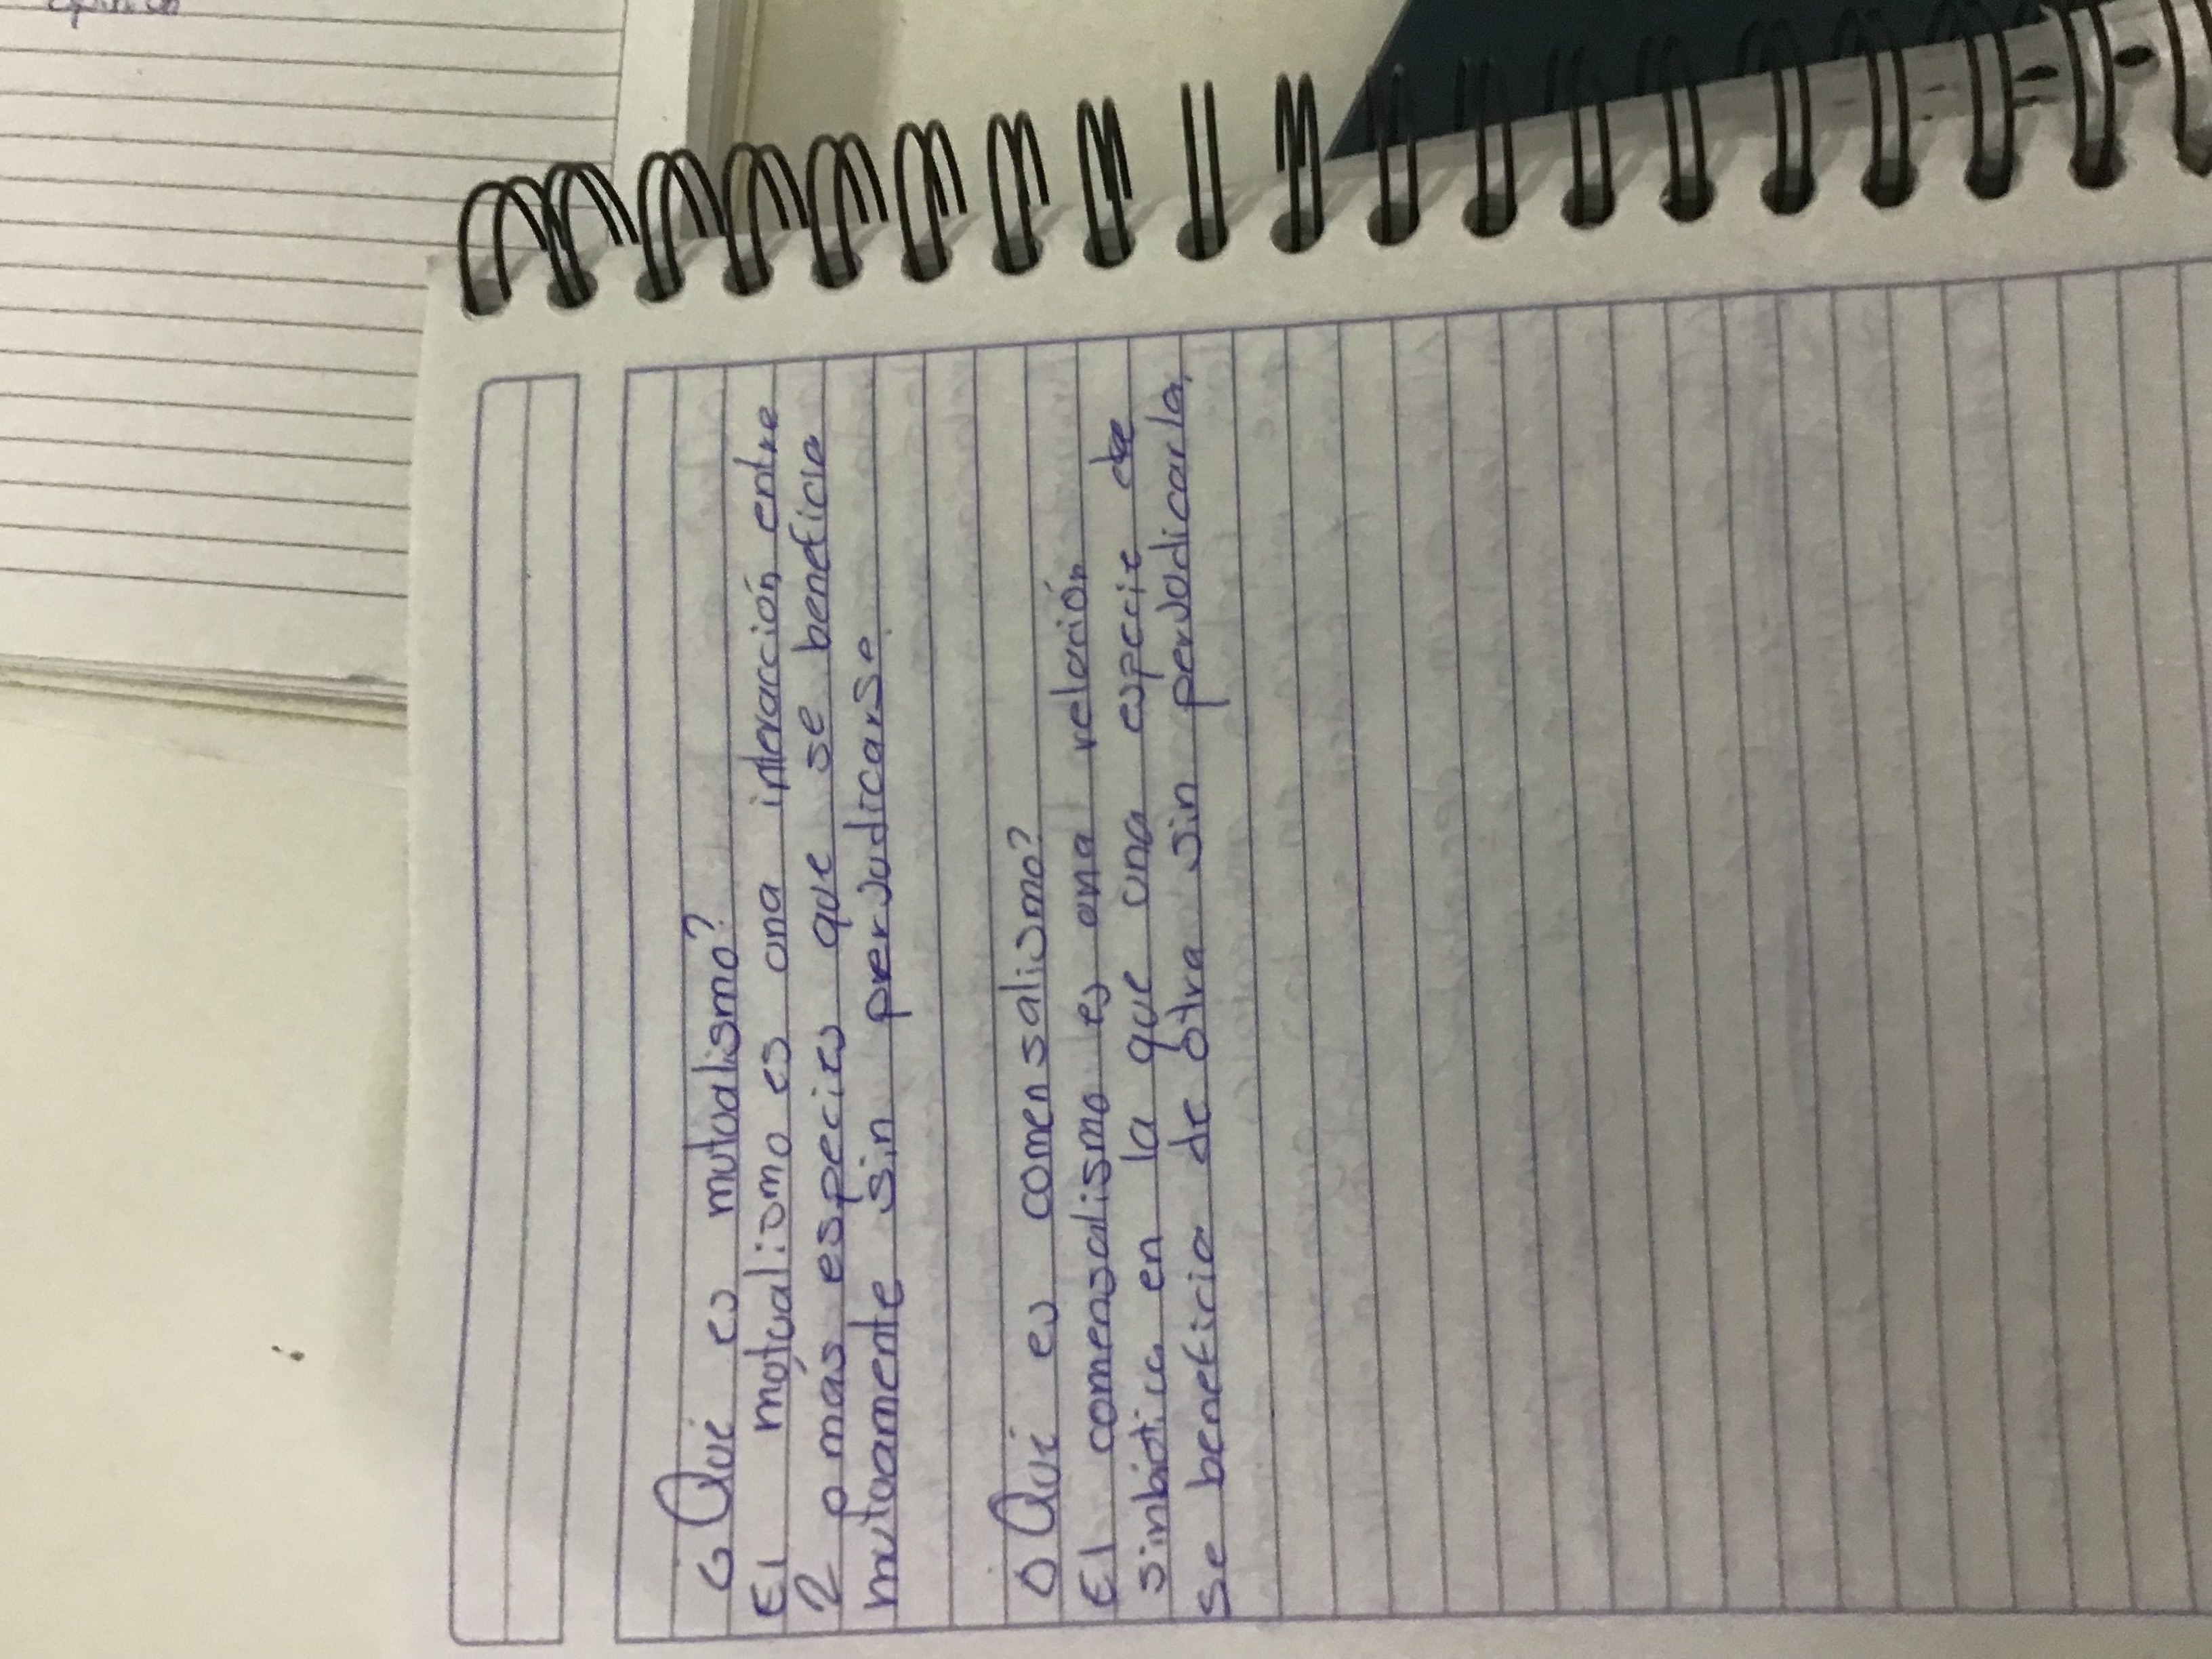 Qué es mutualismo?
El mútualismo es una interacción entre
2 o mas especies que se beneficia
mutuamente sin perjudicarse.
Qué es comensalismo?
El comensalismo es una relación
sinbiótica en la que una especie de
se beneficia de otra sin perjudicarla.